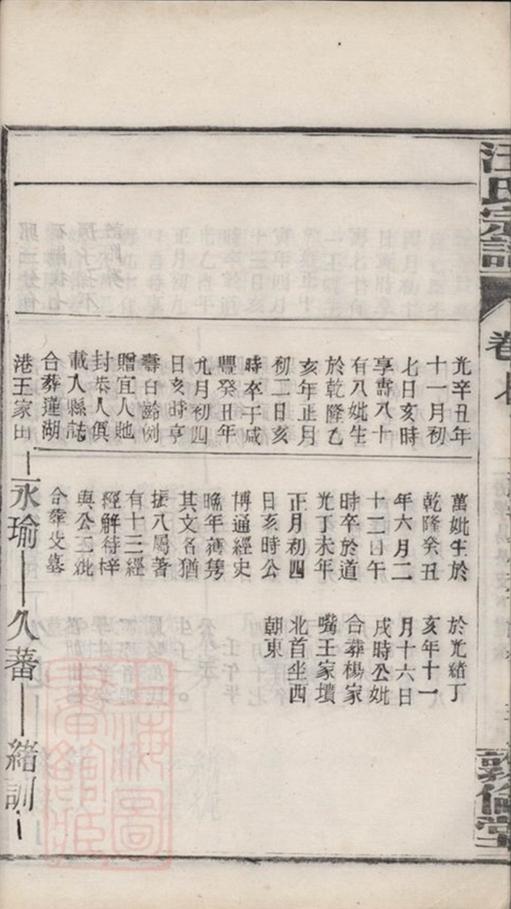 汪氏宗譜
卷七
敦倫堂
光辛丑年
十一月初
七日亥時
享壽八十
有八妣生
於乾隆乙
亥年正月
初二日亥
時卒于咸
豐癸丑年
九月初四
日亥時享
壽百齡例
贈宜人貤
封恭人俱
載入縣誌
合葬蓮湖
港王家山
萬妣生於
乾隆癸丑
年六月二
十二日午
時卒於道
光丁未年
正月初四
日亥時公
博通經史
晚年
其文名猶
振八閩著
有十三經
經解待梓
與公二妣
合葬墓
於光緒丁
亥年十一
月十六日
戌時公妣
合葬楊家
嘴王家墳
北首坐西
朝東
永瑜
久蕃
緒訓